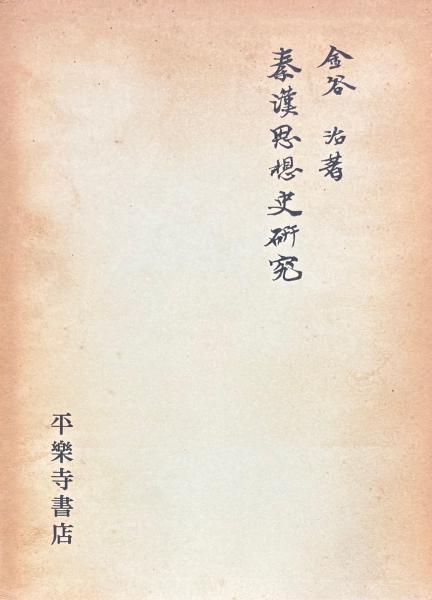 金谷 治著
秦漢思想史研究
平樂寺書店